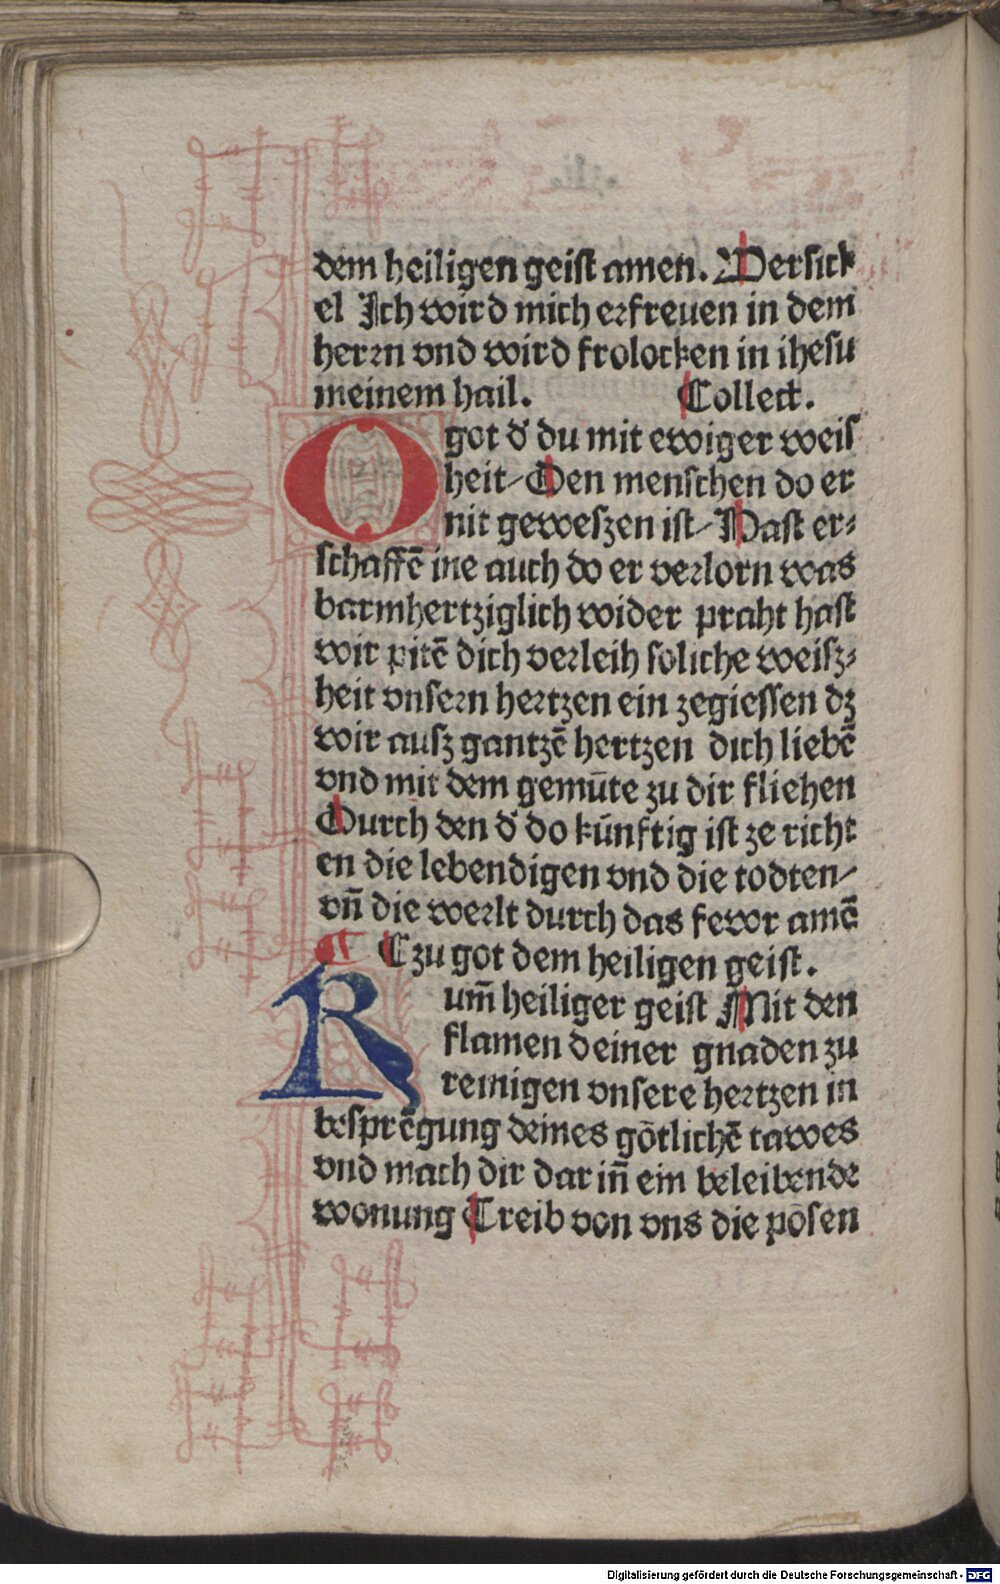 dem heiligen geist amen. Versick
el Ich wird mich erfreuen in dem
herrn vnd wird frolocken in ihesu
meinem hail. Collect.
O got d̓ du mit ewiger weis
heit / Den menschen do er
nit geweszen ist / Hast er⸗
schaffē ine auch do er verlorn was
barmhertziglich wider praht hast
wir pitē dich verleih soliche weisz⸗
heit vnsern hertzen ein zegiessen dz
wir ausz gantzē hertzen dich liebē
vnd mit dem gemūte zu dir fliehen
Durch den d̓ do kūnftig ist ze richt
en die lebendigen vnd die todten /
vn̄ die werlt durch das fewr amē
Czu got dem heiligen geist.
Kum̄ heiliger geist Mit den
flamen deiner gnaden zu
reinigen vnsere hertzen in
besprēgung deines gōtlichē tawes
vnd mach dir dar in̄ ein beleibende
wonung Treib von vns die pōsen
Digitalisierung gefördert durch die Deutsche Forschungsgemeinschaft - DFG